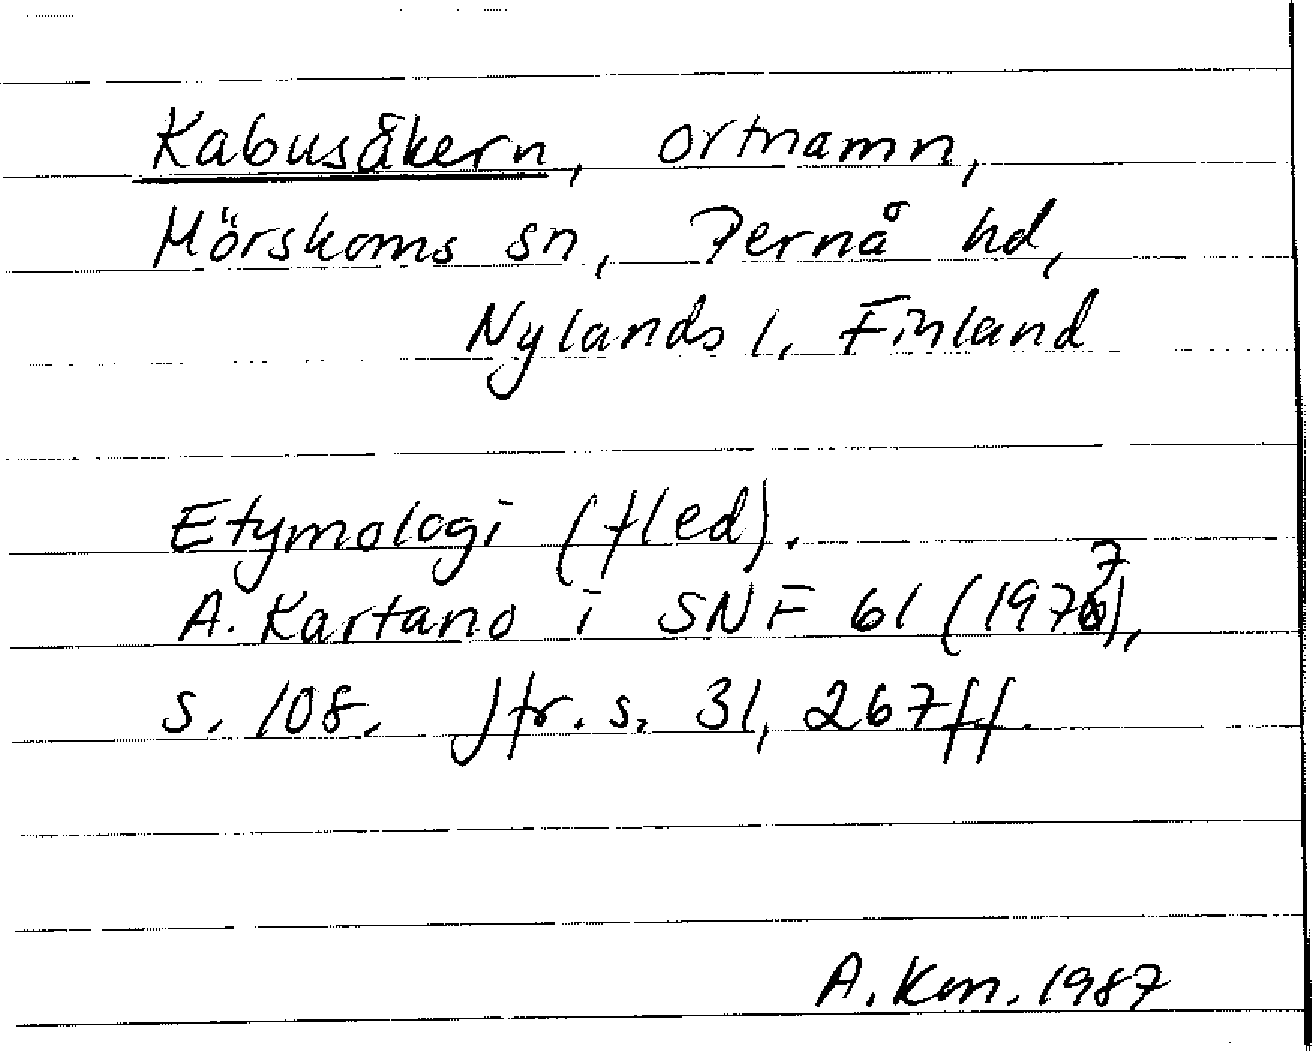 Kabusåkern, ortnamn,
Mörskoms sn, Pernå hd,
Nylands l, Finland
Etymologi (fled).
A. Kartano i SNF 61 (1977),
s. 108. Jfr. s. 31, 267ff.
A. Km. 1987